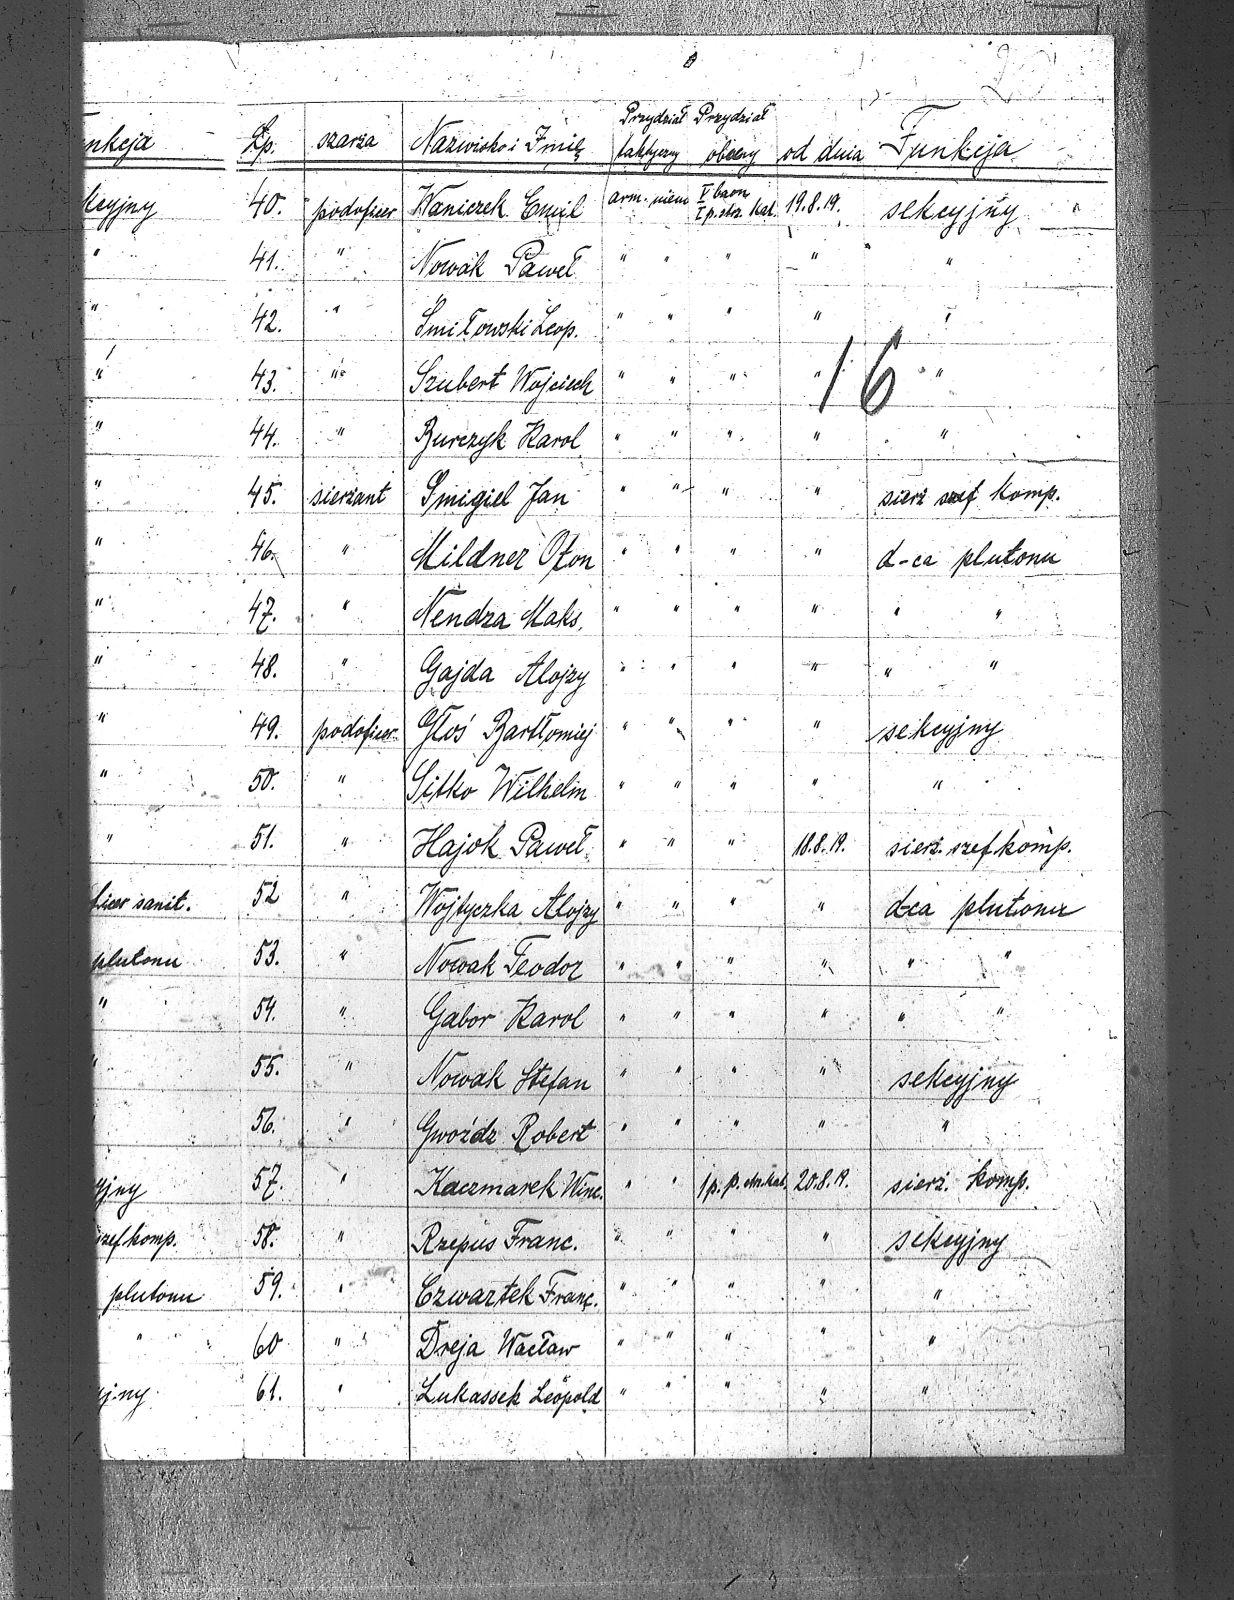 nkcja
kcyjny
"
"
"
"
"
"
"
"
"
"
"
ficer sanit.
plutonu
"
"
yjny
szef komp.
plutonu
"
yj.ny
Lp. szarża Nazwisko i Imię Przydział taktyczny Przydział obecny od dnia Funkcja
40. podoficer Waniczek Emil arm. niem V baon I p. strz. Kat. 19.8.19. sekcyjny
41. " Nowak Paweł " " " " "
42. " Smiłowski Leop. " " " " "
43. " Szubert Wojciech " " " " "
16
44. " Burczyk Karol " " " " "
45. sierżant Smigiel Jan " " " " sierż szef komp.
46. " Mildner Oton " " " " d-ca plutonu
47. " Nendza Maks. " " " " " "
48. " Gajda Alojzy " " " " " "
49. podoficer Głoś Bartłomiej " " " " sekcyjny
50. " Sitko Wilhelm " " " " "
51. " Hajok Paweł " " " 18.8.19. sierż. szef komp.
52 " Wojtyczka Alojzy " " " " d-ca plutonu
53. " Nowak Teodor " " " " " "
54. " Gabor Karol " " " " " "
55. " Nowak Stefan " " " " sekcyjny
56. " Gwoźdz Robert " " " " "
57. " Kaczmarek Winc. " " 1 p. p. strz. kat. 20.8.19. sierż. komp.
58. " Rzepus Franc. " " " " sekcyjny
59. " Czwartek Franc. " " " " "
60 " Dreja Wacław " " " " "
61. " Lukassek Leopold " " " " "